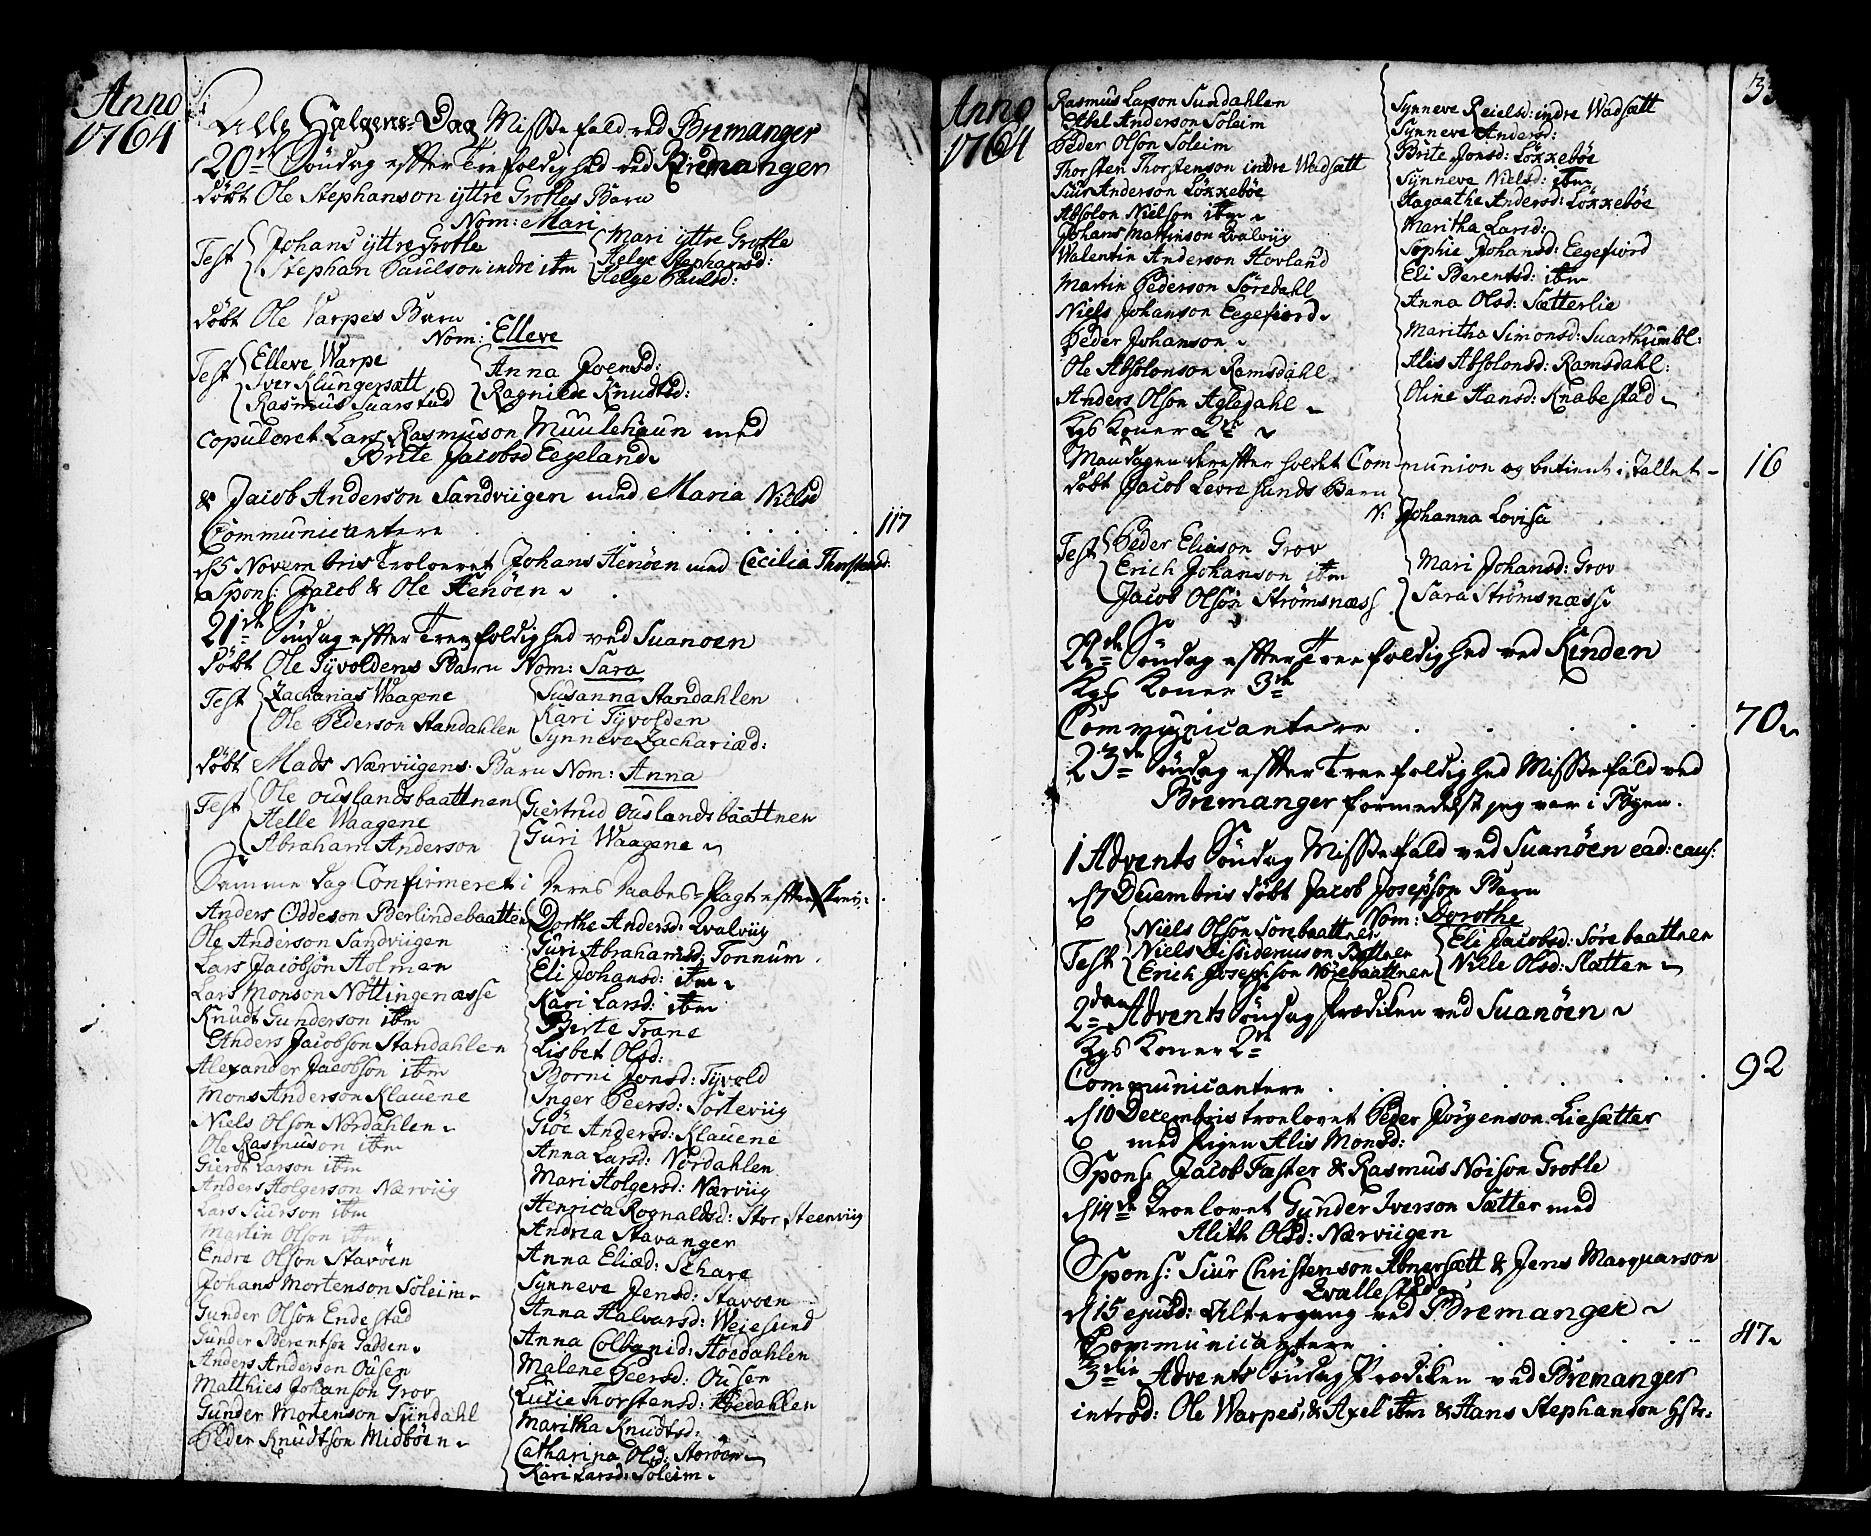 Anno
1764
Alle Helgens-Dag Misse fald ved Bremanger
20de Søndag effter Trefoldighed ved Bremanger
døbt Ole Stephanson yttre Grotles Barn
Nom: Mari
Test Johans yttre Grotle
Stephan Paulson indre itm
Mari yttre Grotle
Helge Stephansd:
Helge Paulsd:
døbt Ole Varpes Barn
Nom: Elleve
Test Elleve Warpe
Iver Klungersætt
Rasmus Suarstad
Anna Joensd:
Ragnilde Knudtsd:
copuleret Lars Rasmuson Muulehaun med
Brite Jacobsd Eegeland
& Jacob Anderson Sandviigen med Maria Nielsd
Communicantere 117
d 5 Novembris Troloveret Johans Henöen med Cecilia Thorstensd:
Spons: Jacob & Ole Henöen
21de Søndag effter Treefoldighed ved Suanoen
døbt Ole Tyvoldens Barn Nom: Sara
Test Zacharias Waagene
Ole Pederson Standahlen
Susanna Standahlen
Kari Tyvolden
Synneve Zachariæd:
døbt Mads Nærviigens Barn Nom: Anna
Test Ole ouslandsbaattnen
Helle Waagene
Abraham Anderson
Giertrud ouslandsbaattnen
Guri Waagene
Samme dag Confirmeret i deres Daabes-Pagt effter
Anders Oddeson Berlindebaatten
Ole Anderson Sandviigen
Lars Jacobson Holmen
Lars Monson Nöttingenæsse
Knudt Gunderson itm
Anders Jacobson Standahlen
Alexander Jacobson itm
Mons Anderson Klauene
Niels Olson Nordahlen
Ole Rasmuson itm
Gierdt Larson itm
Anders Holgerson Nærviig
Lars Siurson itm
Martin Olson itm
Endre Olson Stavöen
Johans Mortenson Soleim
Gunder Olson Endestad
Gunder Berentson Padden
Anders Anderson Ousen
Matthies Johanson Grov
Gunder Mortenson Sundahl
Peder Knudtson Midböen
Dorthe Andersd: Qvalviig
Guri Abrahamsd: Tonnum
Eli Johansd: itm
Kari Larsd: itm
Berte Trane
Lisbet Olsd:
Borni Jonsd: Tyvold
Inger Peersd: Sorteviig
Gjöe Andersd: Klauene
Anna Larsd: Nordahlen
Mari Holgersd: Nærviig
Henrica Rognaldsd: Stor Steenviig
Andrea Stavanger
Anna Eliæd: Schare
Synneve Jensd: Stavoen
Anna Halvarsd: Weiesund
Anna Colbanid: Höedahlen
Malene Peersd: Ousen
Lucie Thorstensd: Höedahlen
Maritha Knudtsd:
Catharina Olsd: Storöen
Kari Larsd: Soleim
Anno
1764
Rasmus Larson Sundahlen
Ethel Anderson Soleim
Peder Olson Soleim
Thorsten Thorstenson indre Wadsætt
Siur Anderson Löxxeböe
Absolon Nielson itm
Johans Martinson Qvalviig
Walentin Anderson Hovland
Martin Pederson Söredahl
Niels Johanson Eegefiord
Peder Johanson
Ole Absolonson Ramsdahl
Anders Olson Agledahl
Kgs Koner 2de
Synneve Reielsd: indre Wadsætt
Synneve Andersd:
Brite Jonsd: Löxxeböe
Synneve Nielsd: itm
Aagaathe Andersd: Löxxeböe
Maritha Larsd:
Sophie Johansd: Eegefiord
Eli Berentsd: itm
Anna Olsd: Sætterlie
Maritha Simonsd: Suarthumbl:
Alis Absolonsd: Ramsdahl:
Oline Hansd: Knabestad
Mandagen dereffter holdet Communion og betient i Tallet 16
døbt Jacob Levresunds Barn
N: Johanna Lovisa
Test Peder Eliason Grov
Erich Johanson itm
Jacob Olson Strömsnæss
Mari Johansd: Grov
Sara Strömsnæsse
22de Søndag effter Treefoldighed ved Kinden
Kgs Koner 3de
Communicantere 70
23de Søndag effter Treefoldighed Misse fald ved
Bremanger formedelst jeg var i Byen.
1 Advents Søndag Misse fald ved Suanöen ead: caus:
d 7 Decembris döbt Jacob Josepson Barn
Nom: Dorothe
Test Niels Olson Sörebaattnen
Niels Disideriuson Bottnen
Erich Josepson Nörebaattnen
Eli Jacobsd: Sörebaattnen
Nille Olsd: Slatten
2den Advents Søndag Prædiken ved Suanöen
Kgs Koner 2de
Communicantere 92
d 10 Decembris troelovet Peder Jörgenson Liesætter
med Pigen Alis Monsd:
Spons: Jacob Fæster & Rasmus Noison Grotle
d 14de troelovet Gunder Iverson Sætter med
Alith Olsd: Nærviigen
Spons: Siur Christenson Abnersætt & Jens Marquarson
Qvallestad
d 15 ejusd: Altergang ved Bremanger
Communicantere 47
3die Advents Søndag Prædiken ved Bremanger
introd: Ole Warpes, & Axel itm & Hans Stephanson Hstr: